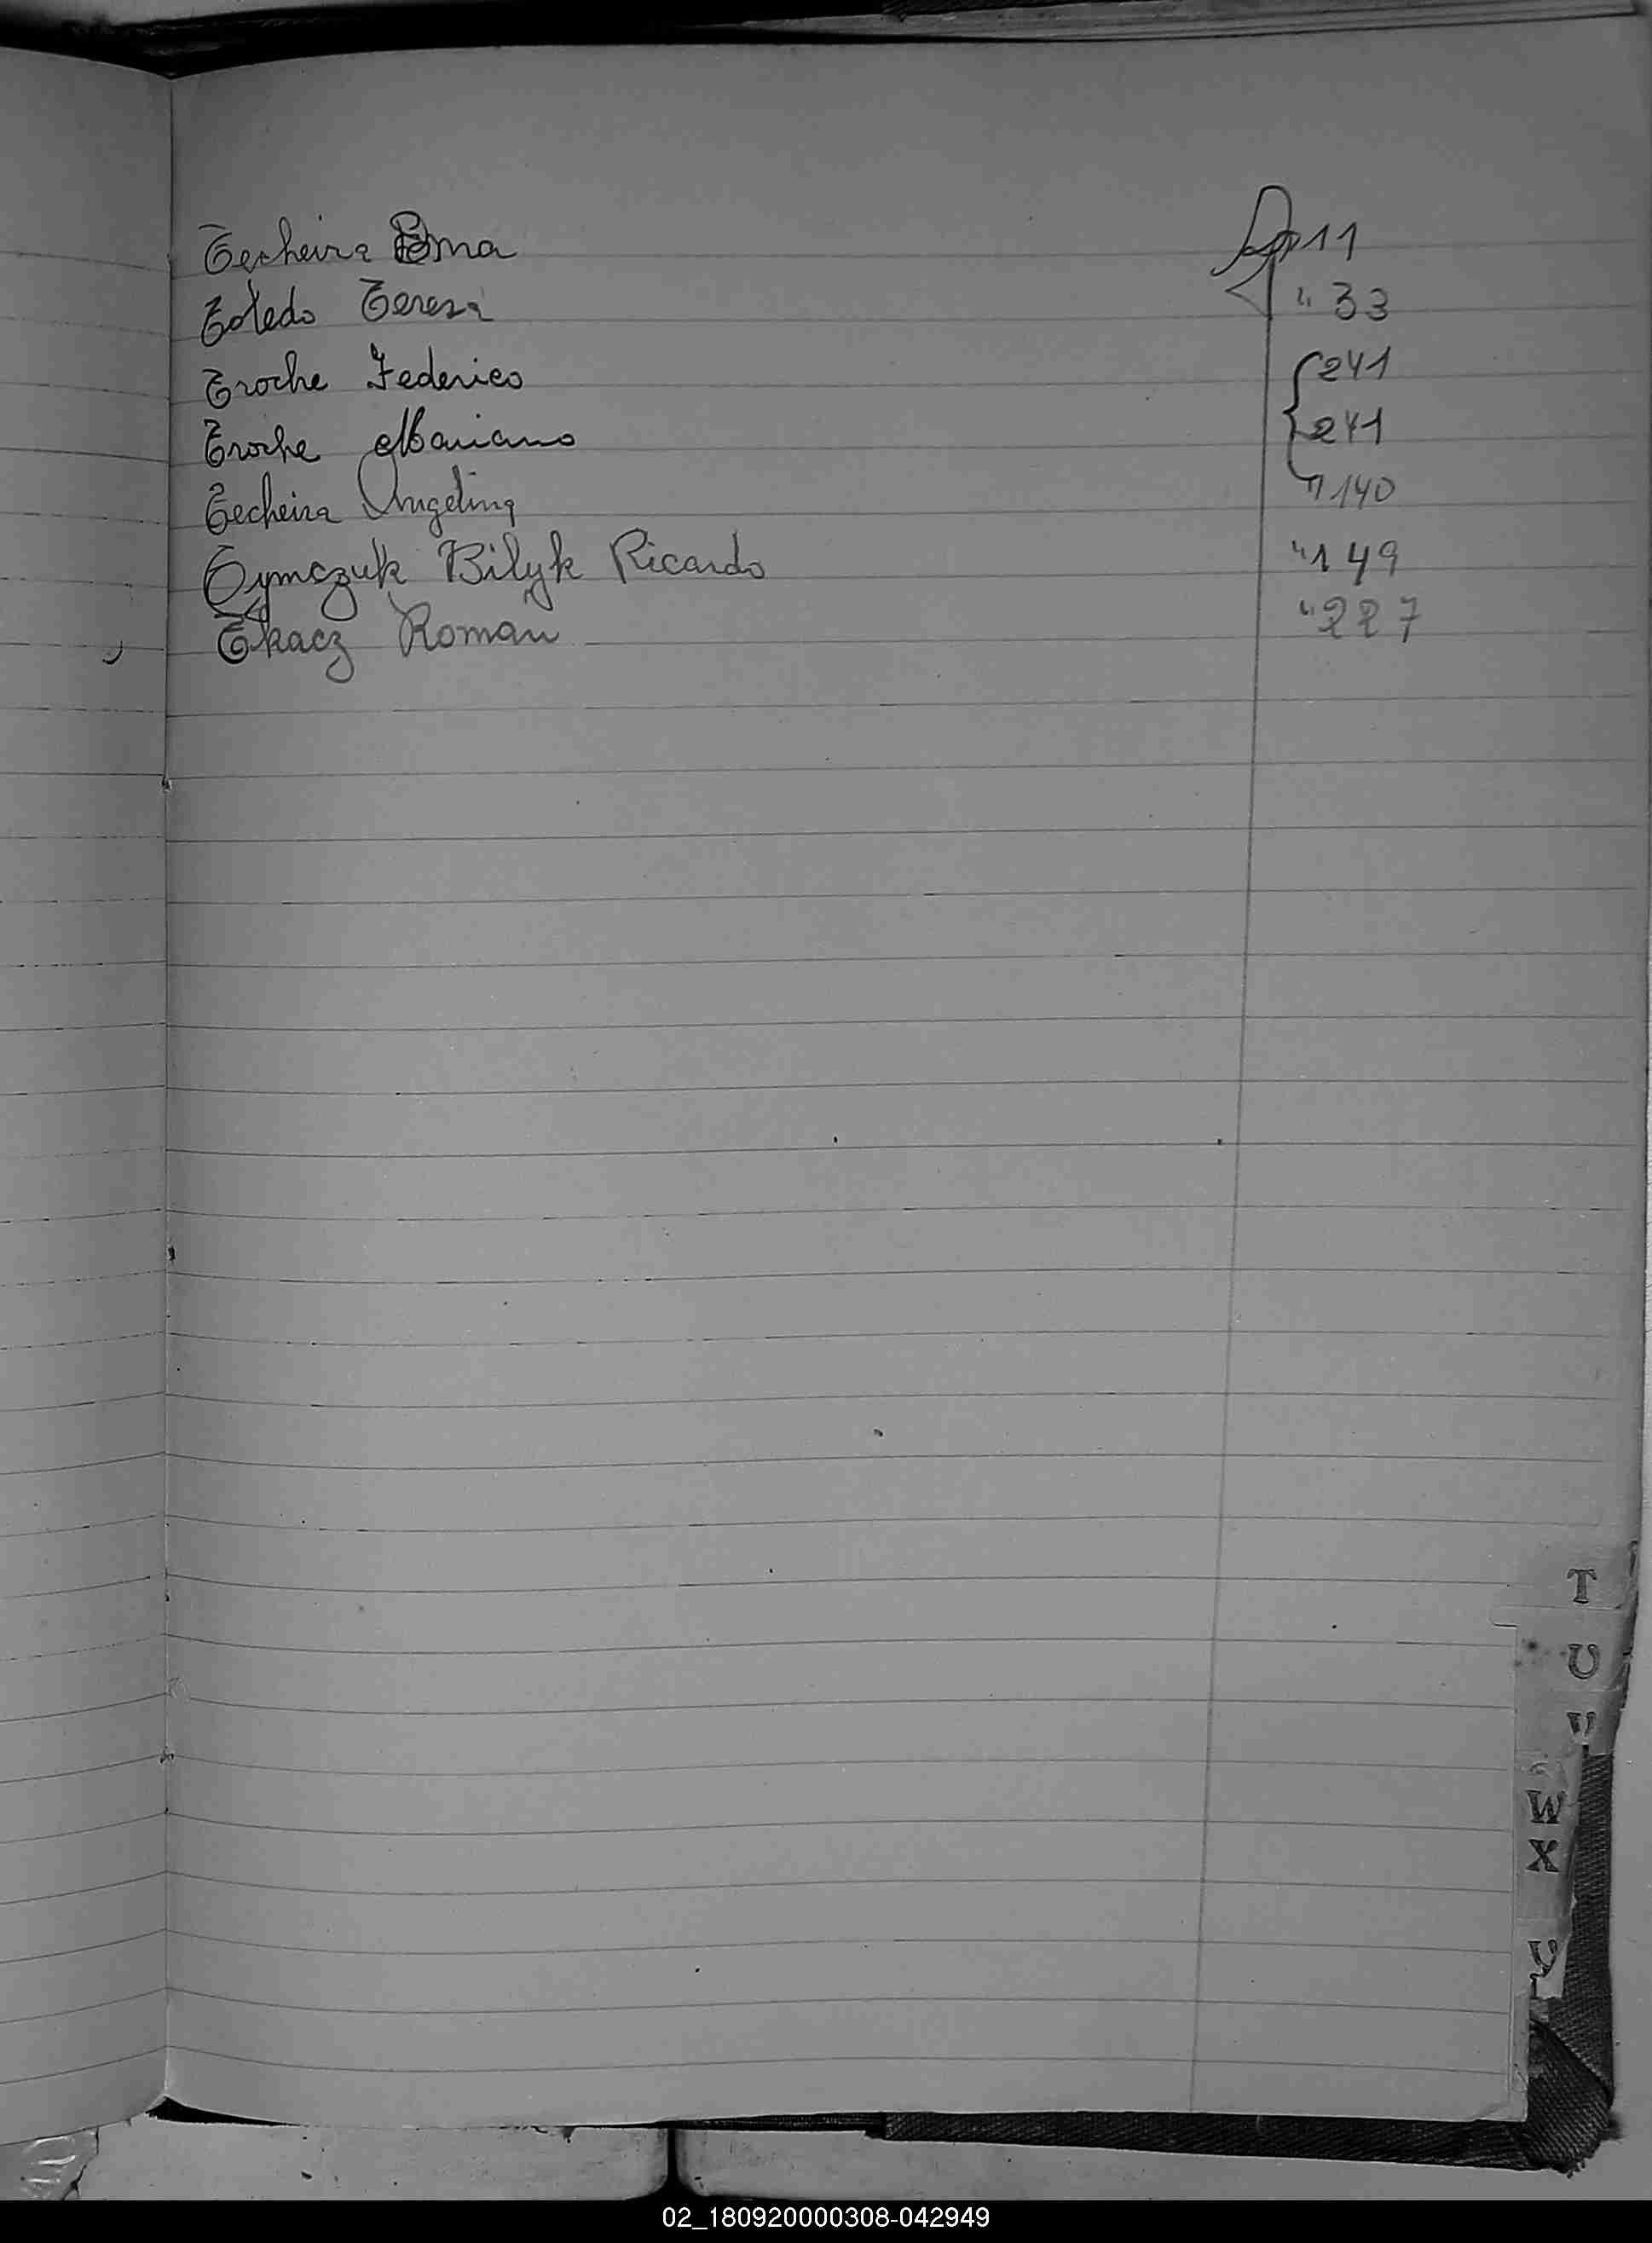 Techeira Ema 11
Toledo Teresa " 33
Troche Federico 241
Troche Mariano 241
Techeira Angelina " 140
Tymczuk Bilyk Ricardo " 149
Tkacz Roman " 227
T
U
V
W
X
Y
02_180920000308-042949